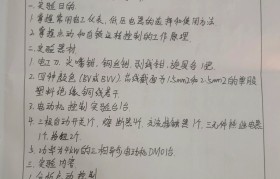 一.实验目的
1.掌握常用电工仪表、低压电器的选择和使用方法
2.掌握点动和自锁运转控制的工作原理
二.实验器材
1.电工刀、尖嘴钳、钢丝钳、剥线钳、旋凿各1把
2.四种颜色(BV或BVV)、芯线截面为1.5mm2和2.5mm2的单股
塑料绝缘铜线若干
3.电动机控制实验台1台
4.三极自动开关1个、熔断器4个、交流接触器1个、三元件热继电器
1个、按钮2个
5.功率为4kW的三相异步电动机DM01台
三.实验内容
1.分析点动控制